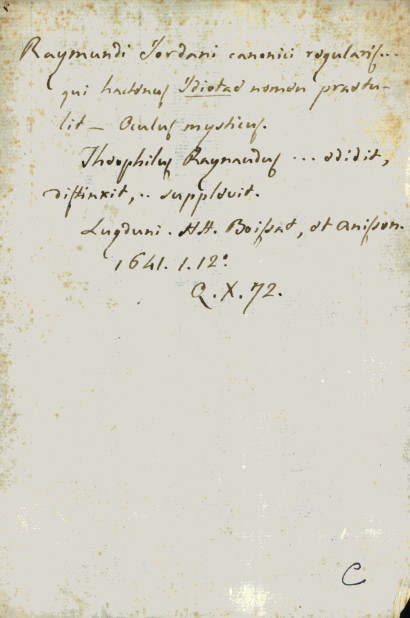 Raymundi Jordani canonici regularis...
qui hactenus Idiotae nomen praetu-
lit — Oculus mysticus.
Theophilus Raynaudus ... edidit,
distinxit, .. supplevit.
Lugduni. HH. Boissat, et Anisson.
1641. 1. 12º
Q. X. 72.
C